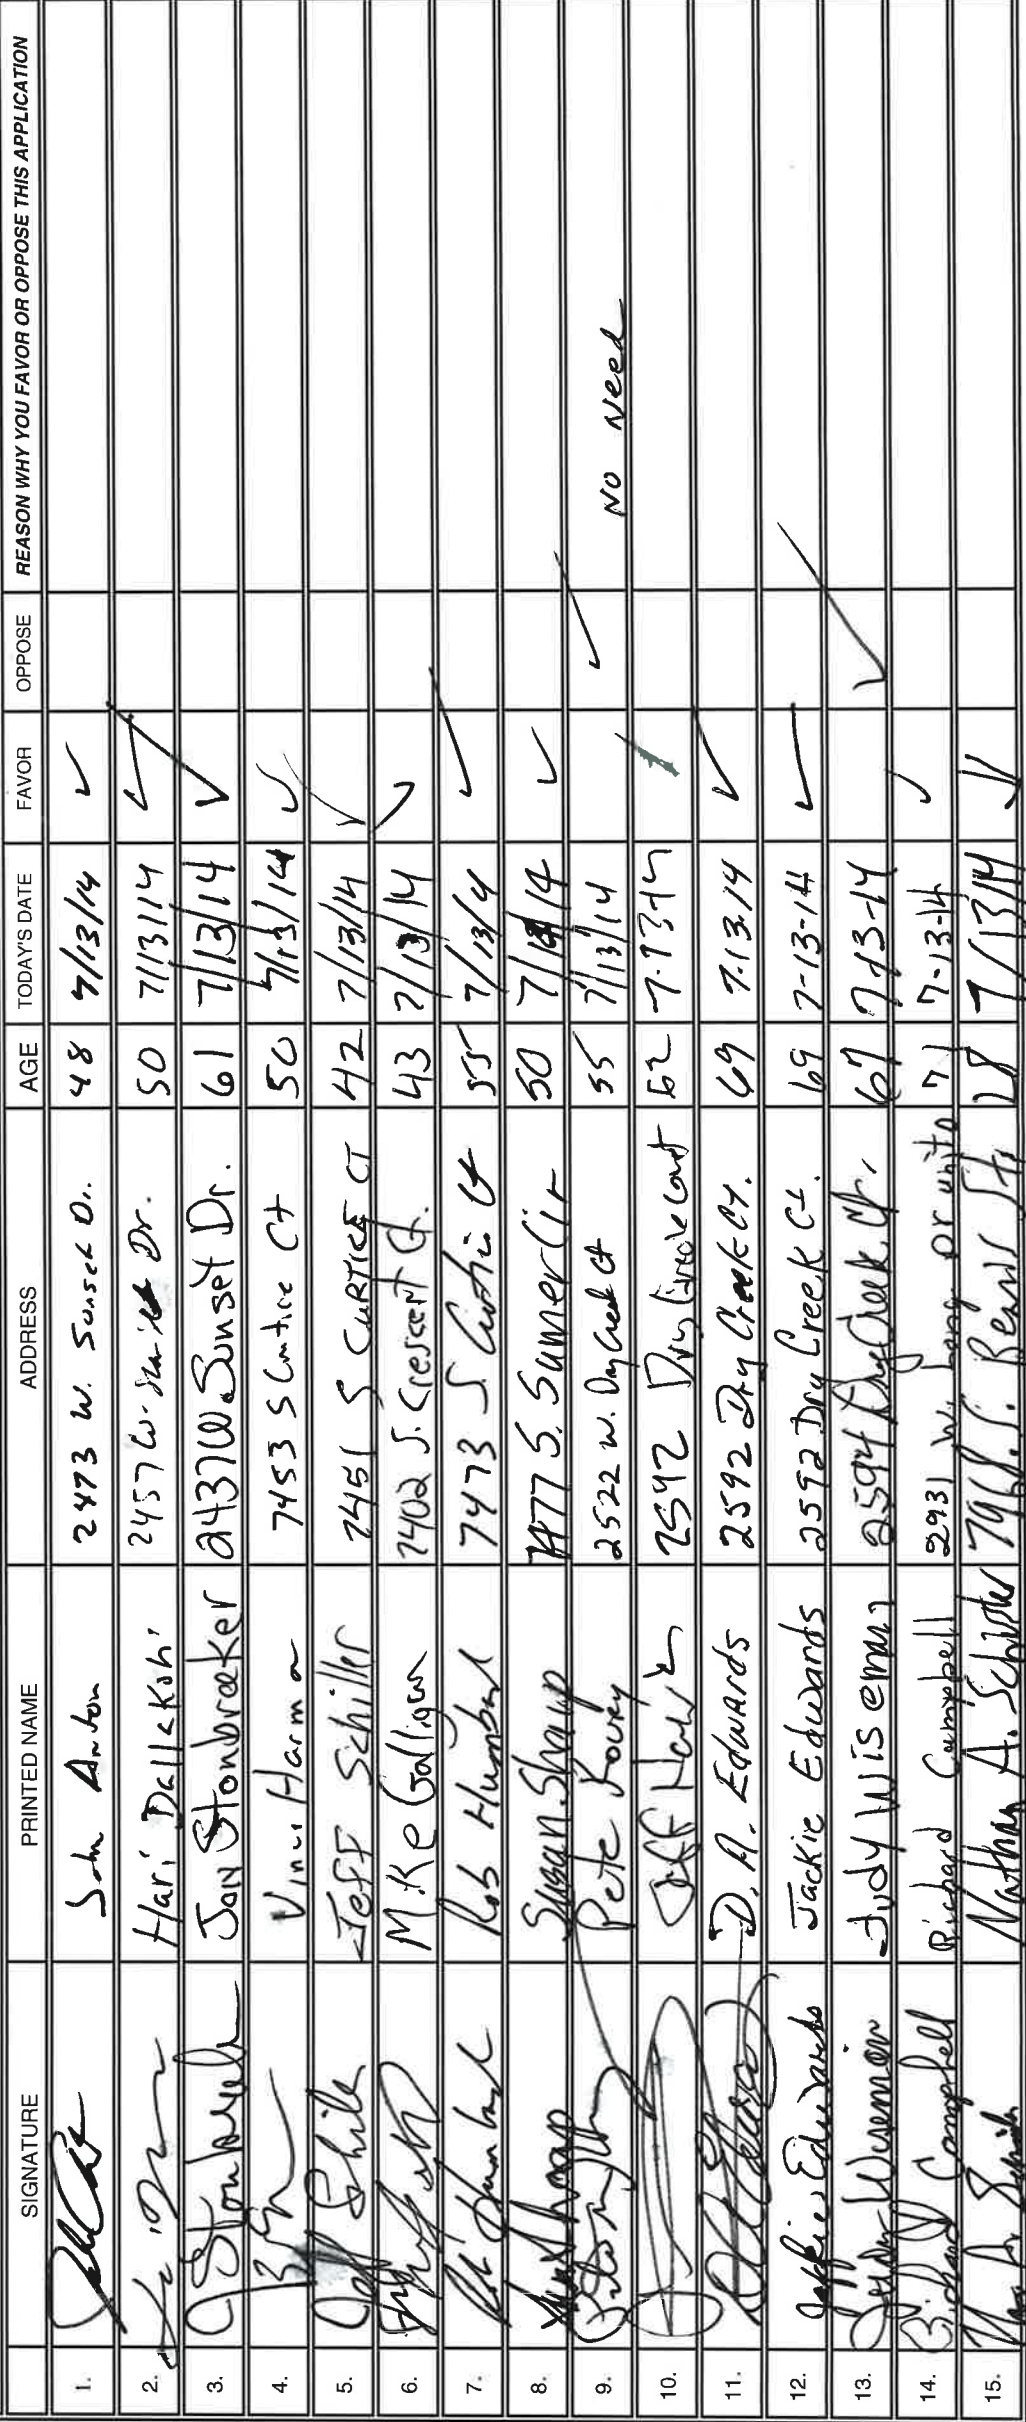 SIGNATURE PRINTED NAME ADDRESS AGE TODAY'S DATE FAVOR OPPOSE REASON WHY YOU FAVOR OR OPPOSE THIS APPLICATION
1. John Anton 2473 W. Sunset Dr. 48 7/13/14 ✓
2. Hari Dallakoti 2457 W. Dr. 50 7/13/14 ✓
3. Jon Stonbraker 2437 W. Sunset Dr. 61 7/13/14 ✓
4. Vinus Harmon 7453 S Curtice Ct 50 7/13/14 ✓
5. Jeff Schiller 7451 S CURTICE CT 42 7/13/14 ✓
6. Mike Galligan 7402 S. Crescent Ct. 43 7/13/14 ✓
7. Rob Humbard 7473 S. Curtice Ct 55 7/13/14 ✓
8. Susan Sharp 7477 S. Sumner Cir 50 7/13/14 ✓
9. Pete 2522 W. Dry Creek Ct 55 7/13/14 ✓ NO Need
10. Jeff 2542 Dry Creek Court 62 7-13-14
11. D. A. Edwards 2592 Dry Creek Ct. 69 7-13-14 ✓
12. Jackie Edwards Jackie Edwards 2592 Dry Creek Ct. 69 7-13-14 ✓
13. Judy Wiseman Judy Wiseman 2594 Dry Creek Ct. 67 7-13-14 ✓
14. Richard Campbell Richard Campbell 2931 W. Long Dr unit D 71 7-13-14 ✓
15. Nathan A. 7968 S. Bears 28 7/13/14 ✓